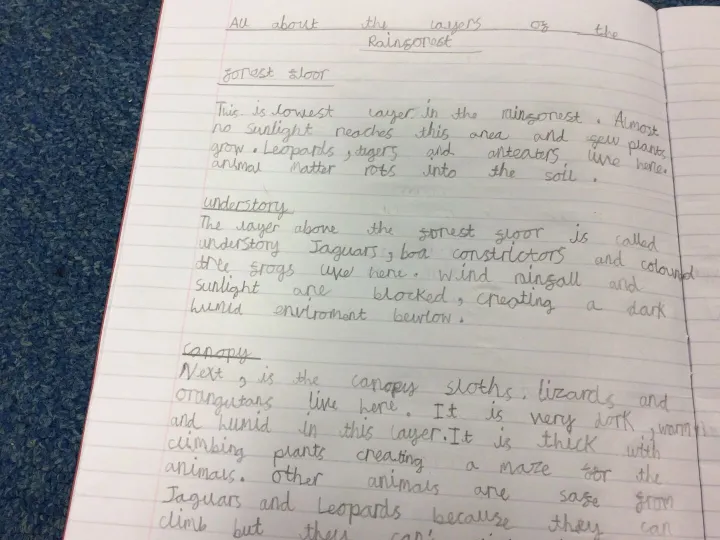 All about the layers of the
Rainforest
forest floor
This is lowest layer in the rinforest. Almost
no sunlight reaches this area and few plants
grow. Leopards, tigers and anteaters live here.
animal matter rots into the soil.
understory
The layer above the forest floor is called
understory Jaguars, boa constrictors and coloured
tree frogs live here. Wind rainfall and
sunlight are blocked, creating a dark
humid enviroment bewlow.
canopy
Next, is the canopy sloths, lizards and
orangutans live here. It is very dark, warm
and humid in this layer. It is thick with
climbing plants creating a maze for the
animals. other animals are safe from
Jaguars and Leopards because they can
climb but they can't